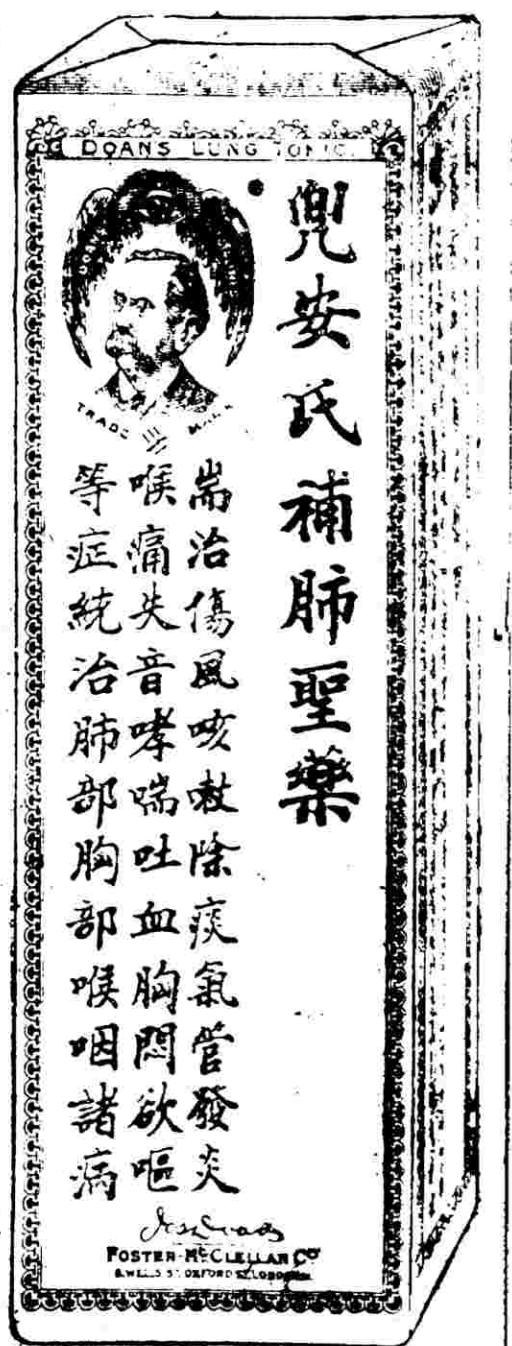 DOANS LUNG TONIC
兜安氏補肺聖藥
耑治傷風咳嗽除痰氣管發炎
喉痛失音哮喘吐血胸悶欲嘔
等症統治肺部胸部喉咽諸病
TRADE MARK
FOSTER-McCLELLAN Co
8, WELLS ST. OXFORD ST. LONDON